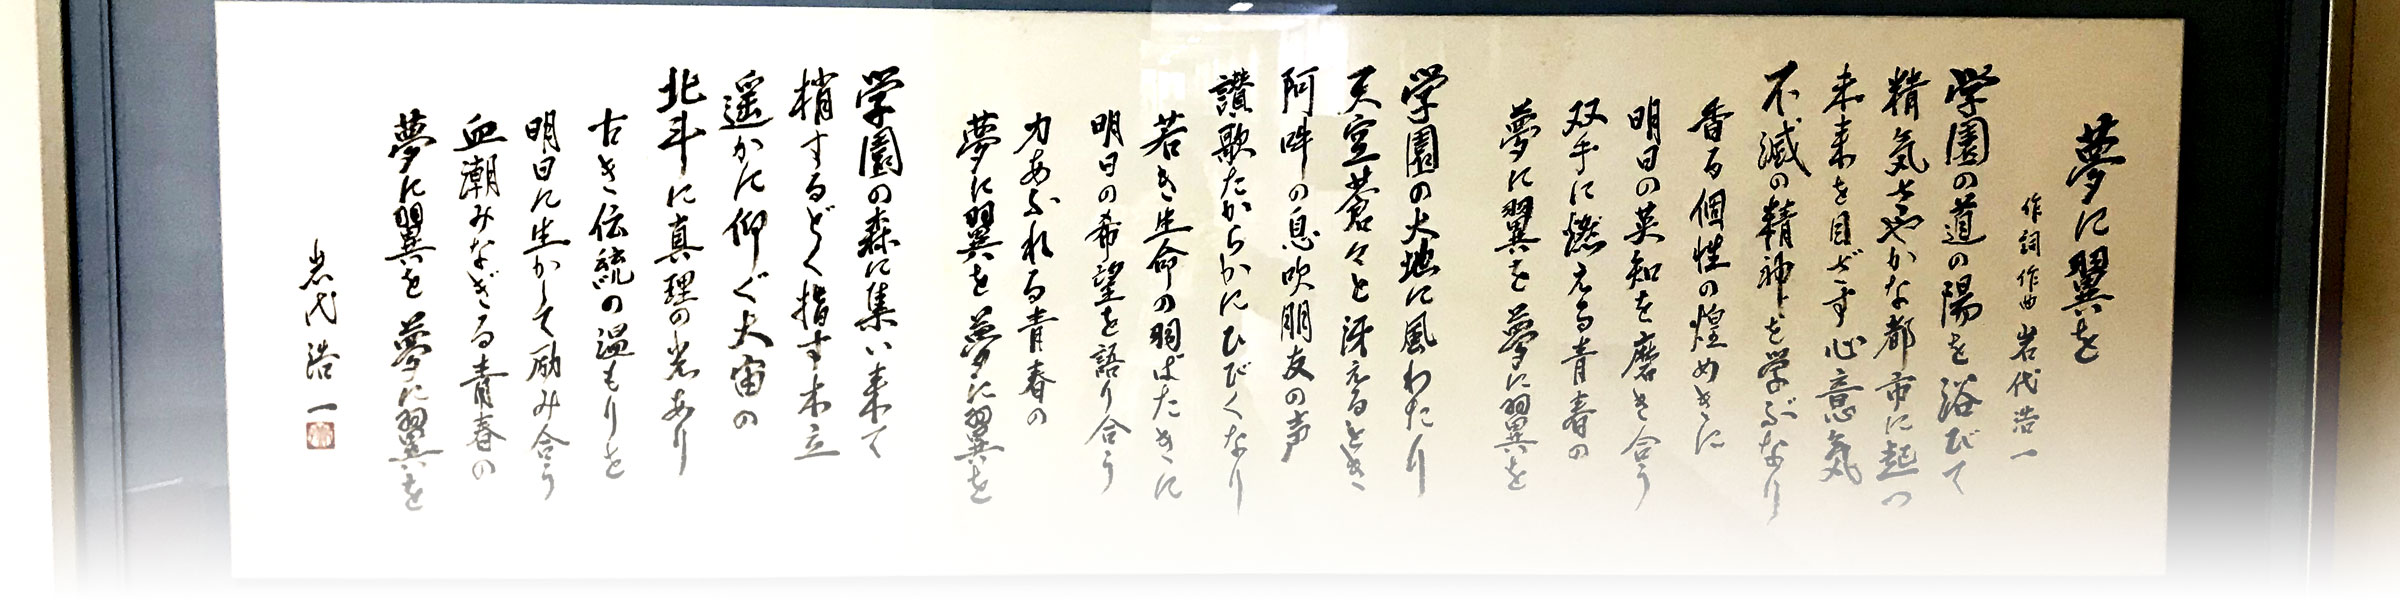 夢に翼を
作詞作曲 岩代浩一
学園の道の陽を浴びて
精気さやかな都市に起つ
未来を目ざす心意気
不滅の精神を学ぶなり
香る個性の煌めきに
明日の英知を磨き合う
双手に燃える青春の
夢に翼を夢に翼を
学園の大地に風わたり
天空蒼々と冴えるとき
阿吽の息吹朋友の声
讃歌たからかにひびくなり
若き生命の羽ばたきに
明日の希望を語り合う
力あふれる青春の
夢に翼を夢に翼を
学園の森に集い来て
梢するどく指す木立
遥かに仰ぐ大宙の
北斗に真理の光あり
古き伝統の温もりを
明日に生かして励み合う
血潮みなぎる青春の
夢に翼を夢に翼を
岩代浩一